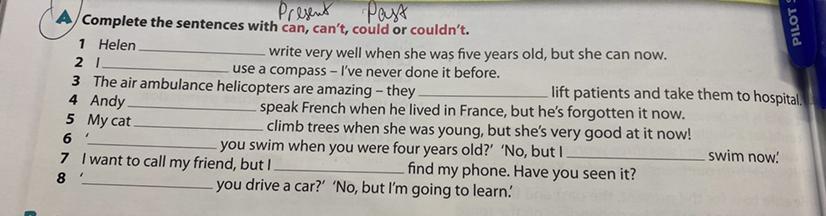 Present Past
PILOT
A Complete the sentences with can, can't, could or couldn't.
1 Helen ____________ write very well when she was five years old, but she can now.
2 I ____________ use a compass – I've never done it before.
3 The air ambulance helicopters are amazing – they ____________ lift patients and take them to hospital.
4 Andy ____________ speak French when he lived in France, but he's forgotten it now.
5 My cat ____________ climb trees when she was young, but she's very good at it now!
6 '____________ you swim when you were four years old?' 'No, but I ____________ swim now.'
7 I want to call my friend, but I ____________ find my phone. Have you seen it?
8 '____________ you drive a car?' 'No, but I'm going to learn.'